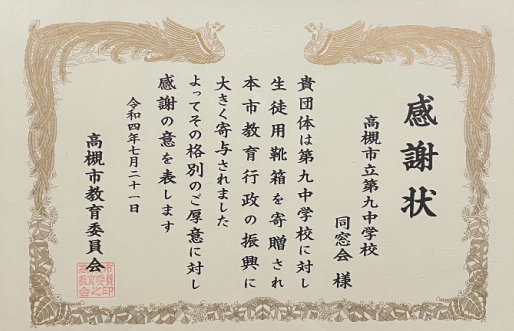 感謝状
高槻市立第九中学校
同窓会 様
貴団体は第九中学校に対し
生徒用靴箱を寄贈され
本市教育行政の振興に
大きく寄与されました
よってその格別のご厚意に対し
感謝の意を表します
令和四年七月二十一日
高槻市教育委員会